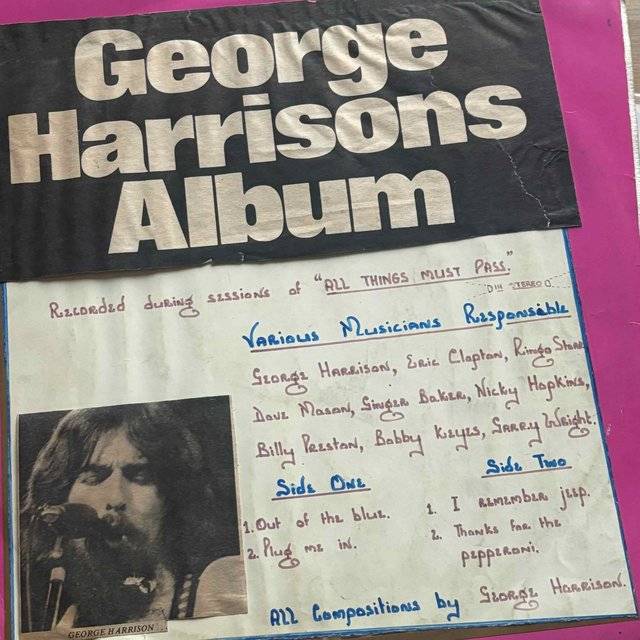 George
Harrisons
Album
Recorded during sessions of "ALL THINGS MUST PASS."
IN STEREO
Various Musicians Responsible
George Harrison, Eric Clapton, Ringo Starr
Dave Mason, Ginger Baker, Nicky Hopkins,
Billy Preston, Bobby Keyes, Garry Wright.
Side One
Side Two
1. Out of the blue.
1. I remember jeep.
2. Plug me in.
2. Thanks for the
pepperoni.
All Compositions by George Harrison.
GEORGE HARRISON